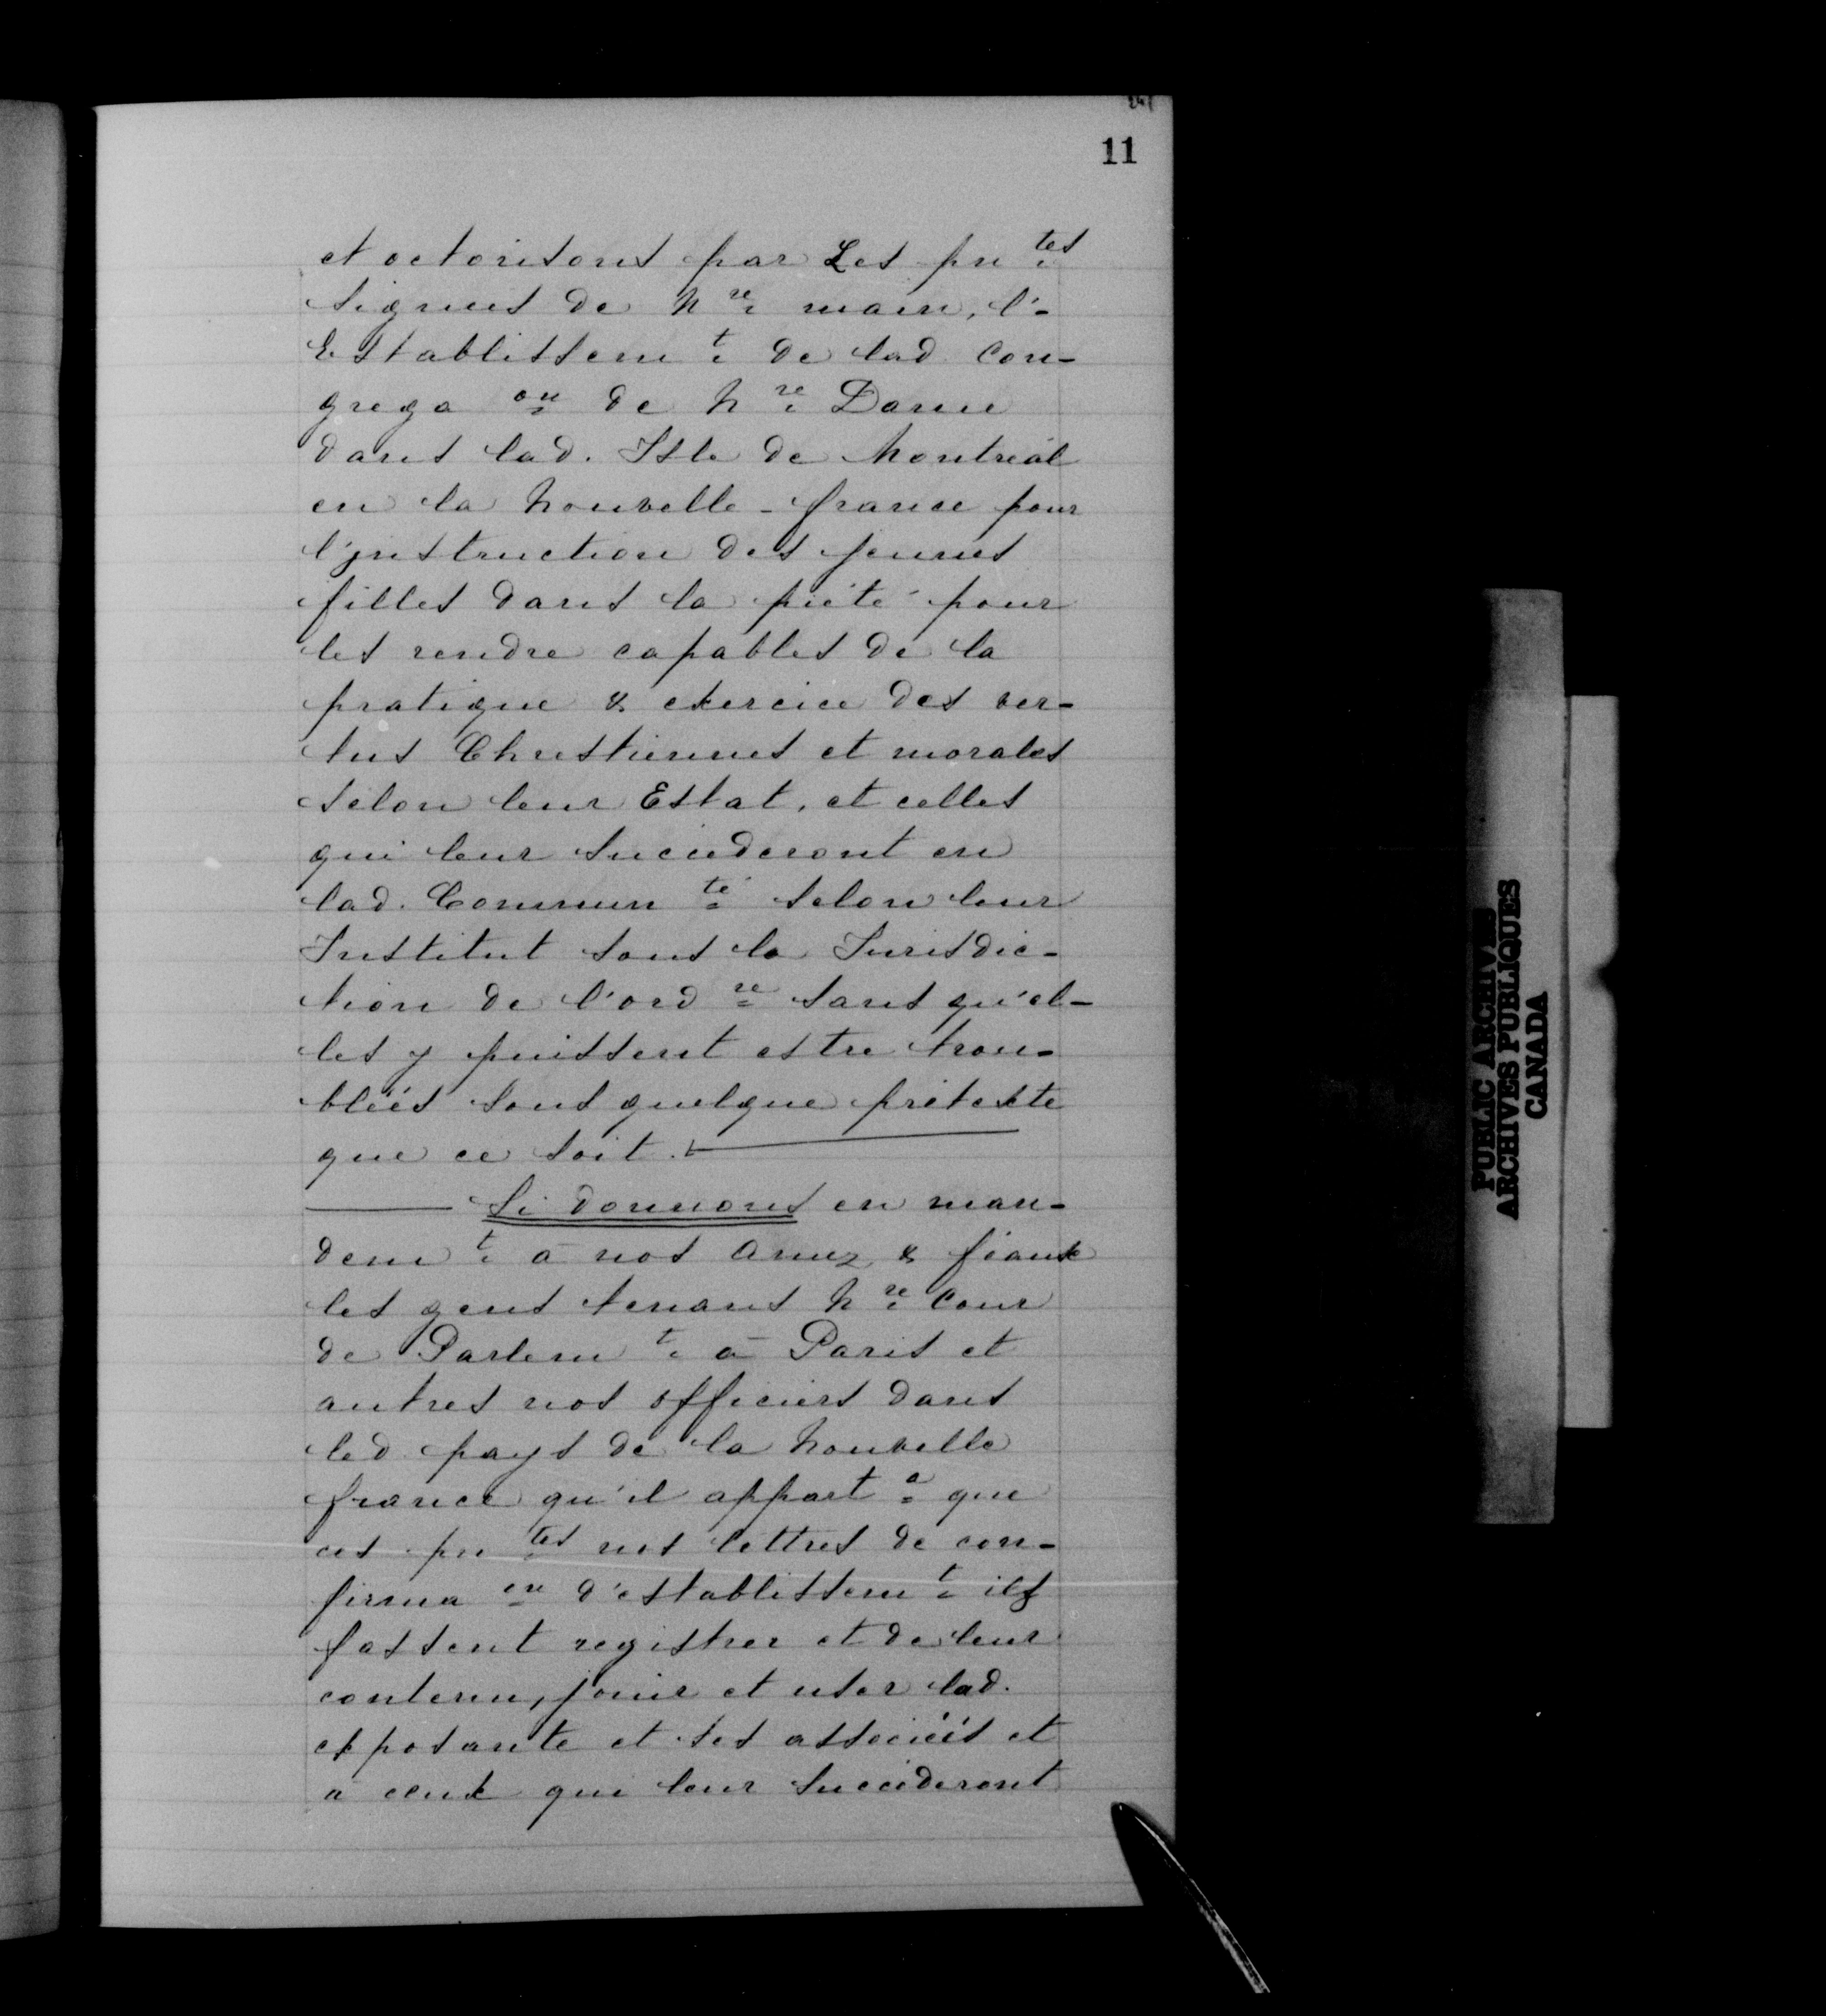 11
et octorisons par Les pntes
signees de nre main, l'-
Establissemt de lad con-
gregaon de nre Dame
dans lad. Isle de Montréal
en la Nouvelle-france pour
l'jnstruction des jeunes
filles dans la piété pour
les rendre capables de la
pratique & exercice des ver-
tus Chrestiennes et morales
selon leur Estat, et celles
qui leur succèderont en
lad. Communté selon leur
Institut sous la Jurisdic-
tion de l'ordre sans qu'el-
les y puissent estre trou-
bléés sous quelque prétexte
que ce soit.
Si donnons en man-
demt à nos amez & féaux
les gens tenans nre Cour
de Parlemt à Paris et
autres nos officiers dans
led pays de la Nouvelle
france qu'il apparta que
ces pntes nos lettres de con-
firmaon d'establissemt ils
fassent registrer et de leur
contenu, jouir et user lad.
exposante et ses associéés et
à ceux qui leur succéderont
PUBLIC ARCHIVES
ARCHIVES PUBLIQUES
CANADA